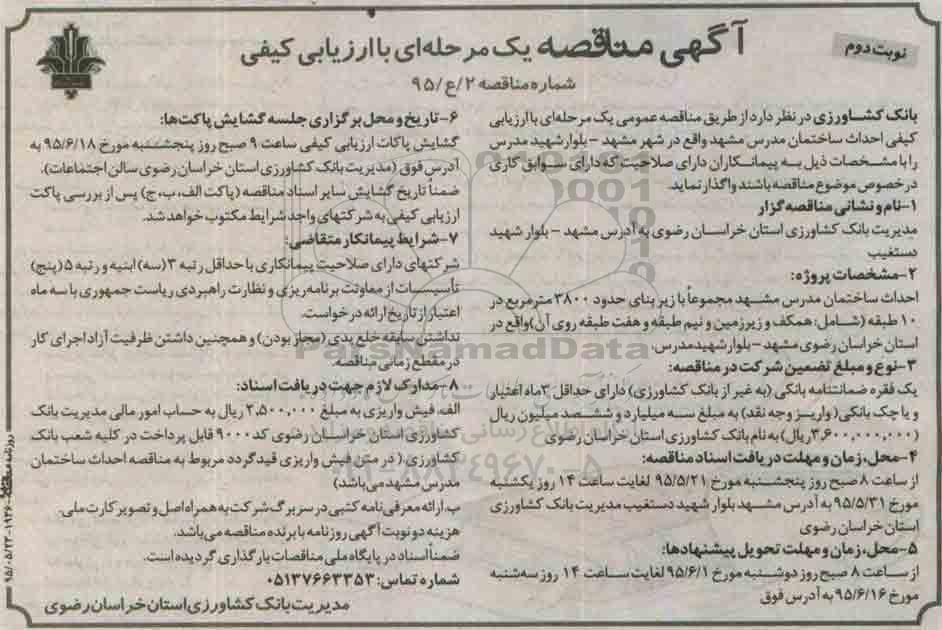 نوبت دوم
آگهی مناقصه یک مرحله‌ای با ارزیابی کیفی
شماره مناقصه ۲/ع/۹۵
بانک کشاورزی در نظر دارد از طریق مناقصه عمومی یک مرحله‌ای با ارزیابی
کیفی احداث ساختمان مدرس مشهد واقع در شهر مشهد - بلوار شهید مدرس
را با مشخصات ذیل به پیمانکاران دارای صلاحیت که دارای سوابق کاری
در خصوص موضوع مناقصه باشند واگذار نماید.
۱-نام و نشانی مناقصه گزار
مدیریت بانک کشاورزی استان خراسان رضوی به آدرس مشهد - بلوار شهید
دستغیب
۲-مشخصات پروژه:
احداث ساختمان مدرس مشهد مجموعاً با زیر بنای حدود ۳۸۰۰ مترمربع در
۱۰ طبقه (شامل: همکف و زیرزمین و نیم طبقه و هفت طبقه روی آن) واقع در
استان خراسان رضوی مشهد - بلوار شهید مدرس.
۳-نوع و مبلغ تضمین شرکت در مناقصه:
یک فقره ضمانتنامه بانکی (به غیر از بانک کشاورزی) دارای حداقل ۳ماه اعتبار
و یا چک بانکی (واریز وجه نقد) به مبلغ سه میلیارد و ششصد میلیون ریال
(۳,۶۰۰,۰۰۰,۰۰۰ریال) به نام بانک کشاورزی استان خراسان رضوی
۴-محل، زمان و مهلت دریافت اسناد مناقصه:
از ساعت ۸ صبح روز پنجشنبه مورخ ۹۵/۵/۲۱ لغایت ساعت ۱۴ روز یکشنبه
مورخ ۹۵/۵/۳۱ به آدرس مشهد بلوار شهید دستغیب مدیریت بانک کشاورزی
استان خراسان رضوی
۵-محل، زمان و مهلت تحویل پیشنهادها:
از ساعت ۸ صبح روز دوشنبه مورخ ۹۵/۶/۱ لغایت ساعت ۱۴ روز سه‌شنبه
مورخ ۹۵/۶/۱۶ به آدرس فوق
۶-تاریخ و محل برگزاری جلسه گشایش پاکت‌ها:
گشایش پاکات ارزیابی کیفی ساعت ۹ صبح روز پنجشنبه مورخ ۹۵/۶/۱۸ به
آدرس فوق (مدیریت بانک کشاورزی استان خراسان رضوی سالن اجتماعات).
ضمناً تاریخ گشایش سایر اسناد مناقصه (پاکت الف، ب، ج) پس از بررسی پاکت
ارزیابی کیفی به شرکتهای واجد شرایط مکتوب خواهد شد.
۷-شرایط پیمانکار متقاضی:
شرکتهای دارای صلاحیت پیمانکاری با حداقل رتبه ۳ (سه) ابنیه و رتبه ۵ (پنج)
تأسیسات از معاونت برنامه‌ریزی و نظارت راهبردی ریاست جمهوری با سه ماه
اعتبار از تاریخ ارائه درخواست.
نداشتن سابقه خلع یدی (مجاز بودن) و همچنین داشتن ظرفیت آزاد اجرای کار
در مقطع زمانی مناقصه.
۸-مدارک لازم جهت دریافت اسناد:
الف. فیش واریزی به مبلغ ۲,۵۰۰,۰۰۰ ریال به حساب امور مالی مدیریت بانک
کشاورزی استان خراسان رضوی کد ۹۰۰۰ قابل پرداخت در کلیه شعب بانک
کشاورزی (در متن فیش واریزی قید گردد مربوط به مناقصه احداث ساختمان
مدرس مشهد می‌باشد)
ب. ارائه معرفی نامه کتبی در سربرگ شرکت به همراه اصل و تصویر کارت ملی.
هزینه دو نوبت آگهی روزنامه با برنده مناقصه می‌باشد.
ضمناً اسناد در پایگاه ملی مناقصات بارگذاری گردیده است.
شماره تماس: ۰۵۱۳۷۶۶۳۳۵۳
مدیریت بانک کشاورزی استان خراسان رضوی
ParsNamadData